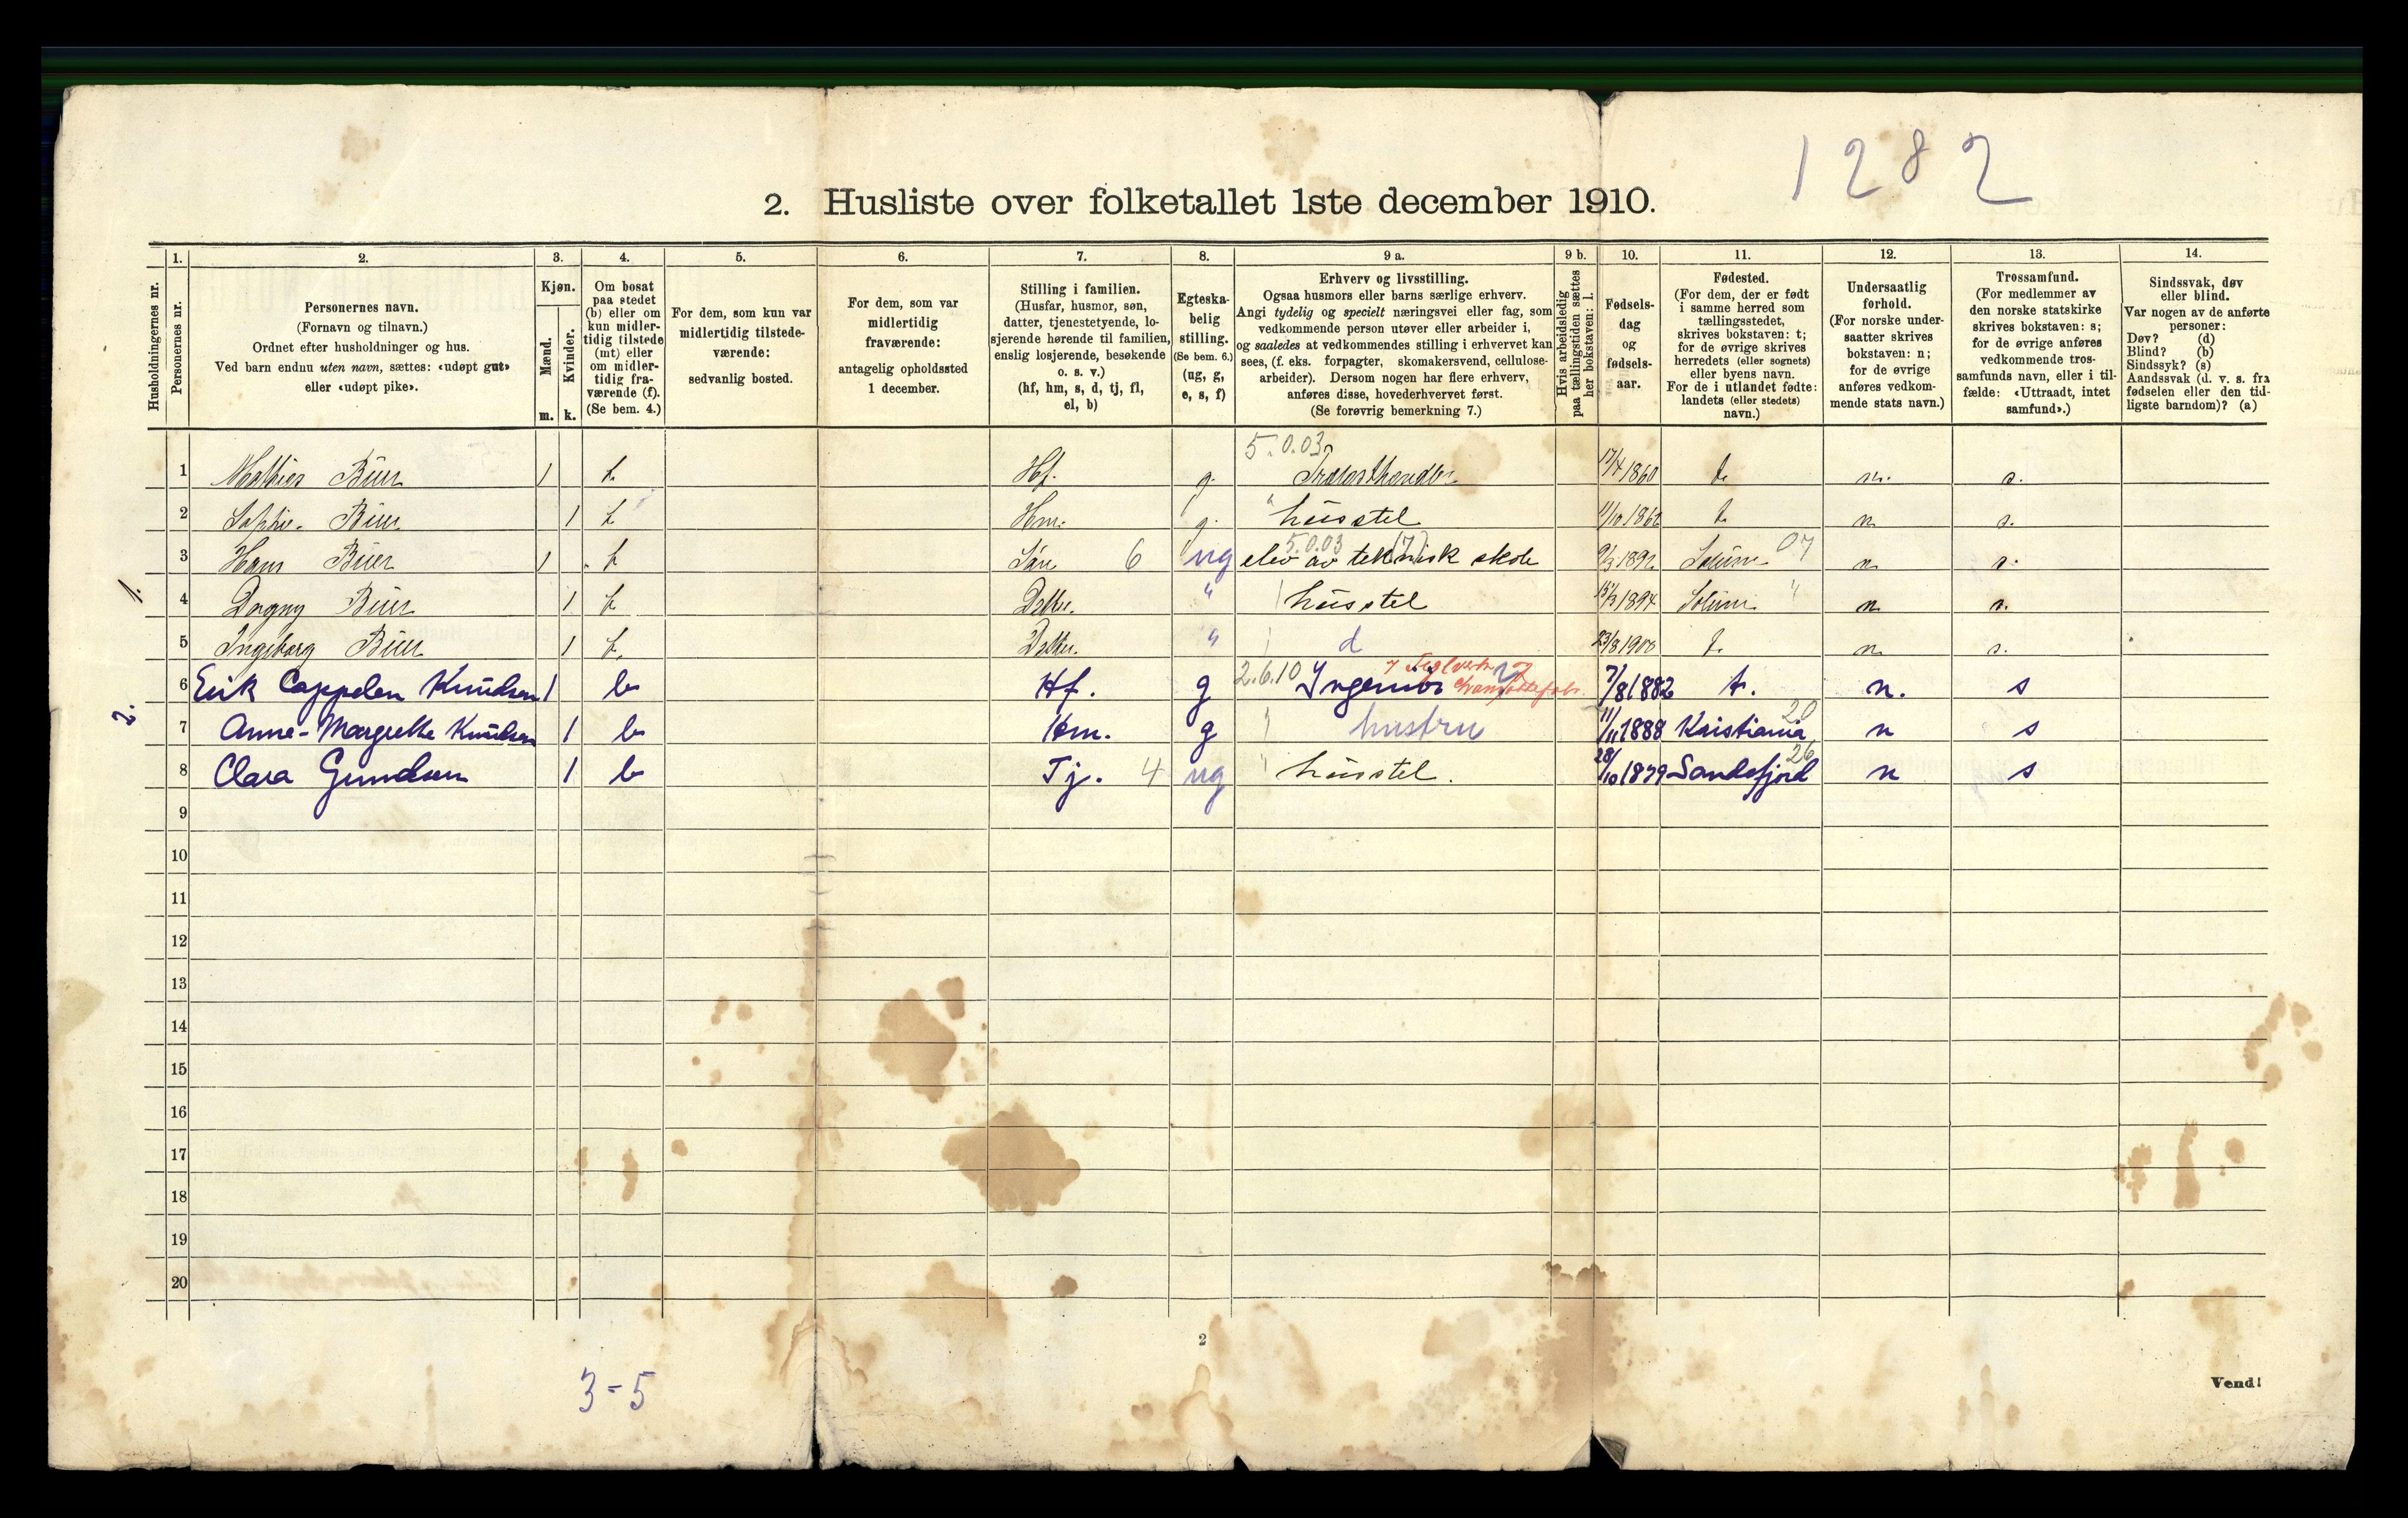 1282
2. Husliste over folketallet 1ste december 1910.
Husholdningernes nr.
1. Personernes nr.
2. Personernes navn.
(Fornavn og tilnavn.)
Ordnet efter husholdninger og hus.
Ved barn endnu uten navn, sættes: «udøpt gut»
eller «udøpt pike».
3. Kjøn.
Mænd. m.
Kvinder. k.
4. Om bosat
paa stedet
(b) eller om
kun midler-
tidig tilstede
(mt) eller
om midler-
tidig fra-
værende (f).
(Se bem. 4.)
5. For dem, som kun var
midlertidig tilstede-
værende:
sedvanlig bosted.
6. For dem, som var
midlertidig
fraværende:
antagelig opholdssted
1 december.
7. Stilling i familien.
(Husfar, husmor, søn,
datter, tjenestetyende, lo-
sjerende hørende til familien,
enslig losjerende, besøkende
o. s. v.)
(hf, hm, s, d, tj, fl,
el, b)
8. Egteska-
belig
stilling.
(Se bem. 6.)
(ug, g,
e, s, f)
9 a. Erhverv og livsstilling.
Ogsaa husmors eller barns særlige erhverv.
Angi tydelig og specielt næringsvei eller fag, som
vedkommende person utøver eller arbeider i,
og saaledes at vedkommendes stilling i erhvervet kan
sees, (f. eks. forpagter, skomakersvend, cellulose-
arbeider). Dersom nogen har flere erhverv,
anføres disse, hovederhvervet først.
(Se forøvrig bemerkning 7.)
9 b. Hvis arbeidsledig
paa tællingstiden sættes
her bokstaven: l.
10. Fødsels-
dag
og
fødsels-
aar.
11. Fødested.
(For dem, der er født
i samme herred som
tællingsstedet,
skrives bokstaven: t;
for de øvrige skrives
herredets (eller sognets)
eller byens navn.
For de i utlandet fødte:
landets (eller stedets)
navn.)
12. Undersaatlig
forhold.
(For norske under-
saatter skrives
bokstaven: n;
for de øvrige
anføres vedkom-
mende stats navn.)
13. Trossamfund.
(For medlemmer av
den norske statskirke
skrives bokstaven: s;
for de øvrige anføres
vedkommende tros-
samfunds navn, eller i til-
fælde: «Uttraadt, intet
samfund».)
14. Sindssvak, døv
eller blind.
Var nogen av de anførte
personer:
Døv? (d)
Blind? (b)
Sindssyk? (s)
Aandssvak (d. v. s. fra
fødselen eller den tid-
ligste barndom)? (a)
5.0.03
1 Mathias Buer 1 b. Hf. g. Trælasthandler 17/4 1860 t. n. s.
2 Sophie Buer 1 b Hm. g. husstel 1862 t. n s.
5.0.03 (7)
1. 3 Hans Buer 1 b Søn 6 ug elev av teknisk skole 1892 Solum 07 n s.
4 Dagny Buer 1 b Datter. " husstel 1894 Solum " n s.
5 Ingeborg Buer 1 b. Datter. " d 23/8 1900 t. n s.
2. 6 Erik Cappelen Knudsen 1 b Hf. g 2.6.10 Ingeniør Teglverk og chamottefabr. 7/8 1882 t. n. s
7 Anne-Margrethe Knudsen 1 b Hm. g hustru 11/11 1888 Kristiania 20 n s
8 Clara Gundersen 1 b Tj. 4 ug husstel. 28/10 1879 Sandefjord 26 n s
9
10
11
12
13
14
15
16
17
18
19
20
2
3-5
Vend!